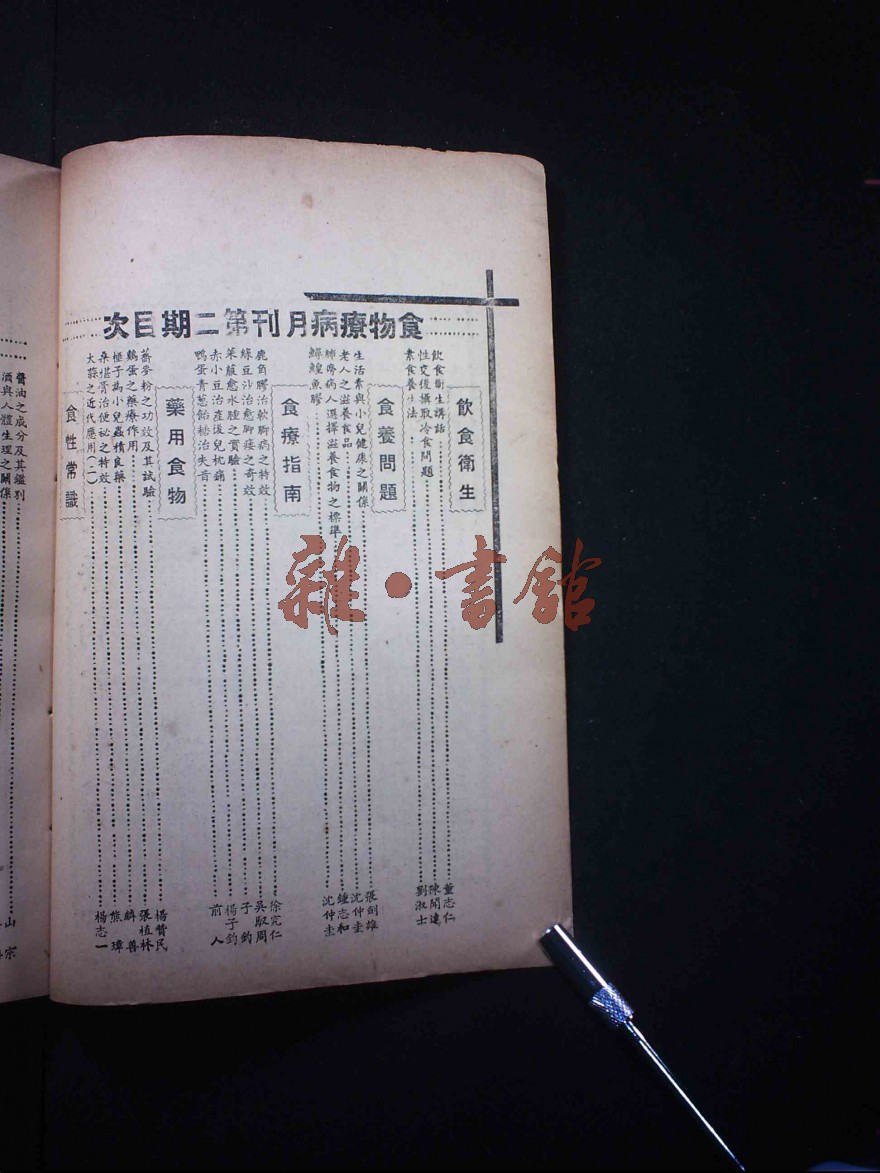 食物療病月刊第二期目次
飲食衛生
飲食衛生講話 董志仁
性交後攝取冷食問題 陳聞達
素食養生法 劉淑士
食養問題
生活素與小兒健康之關係 張劍雄
老人之滋養食品 沈仲圭
肺癆病人選擇滋養食物之標準 鍾志和
鰉魚膠 沈仲圭
食療指南
鹿角膠治軟腳病之特效 徐究仁
綠豆沙治愈腳痿之奇效 吳馭周
菜菔愈水腫之實驗 子鈞
赤小豆治產後兒枕痛 楊子鈞
鴨蛋青葱飴糖治失音 前人
藥用食物
蕎麥粉之功效及其試驗 楊贊民
鷄蛋之藥療作用 張植林
榧子為小兒蟲積良藥 麟善
桑椹膏治便祕之特效 熊璋
大蒜之近代應用(二) 楊志一
食性常識
醬油之成分及其鑑別
酒與人體生理之關係
山
宗
雜·書館